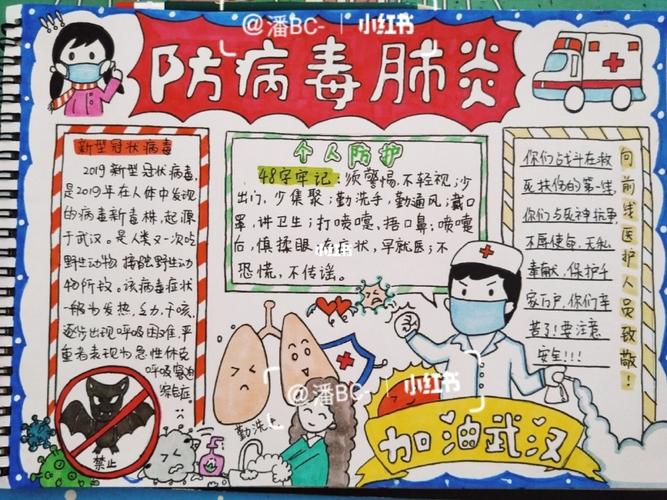 @潘BC- | 小红书
防病毒肺炎
新型冠状病毒
2019新型冠状病毒,
是2019年在人体中发现
的病毒新毒株,起源
于武汉。是人类又一次吃
野生动物 接触野生动
物所致。该病毒症状
一般为发热,乏力,干咳,
逐步出现呼吸困难,严
重者表现为急性休克
呼吸窘迫
综合症。
禁止
个人防护
48字牢记:须警惕,不轻视;少
出门,少集聚;勤洗手,勤通风;戴口
罩,讲卫生;打喷嚏,捂口鼻;喷嚏
后,慎揉眼,有症状,早就医;不
恐慌,不传谣。
小红书
你们战斗在救
死扶伤的第一线,
你们与死神抗争,
不辱使命,无私
奉献,保护千
家万户,你们辛
苦了!要注意
安全!!!
向前线医护人员致敬!
@潘BC- | 小红书
勤洗
加油武汉